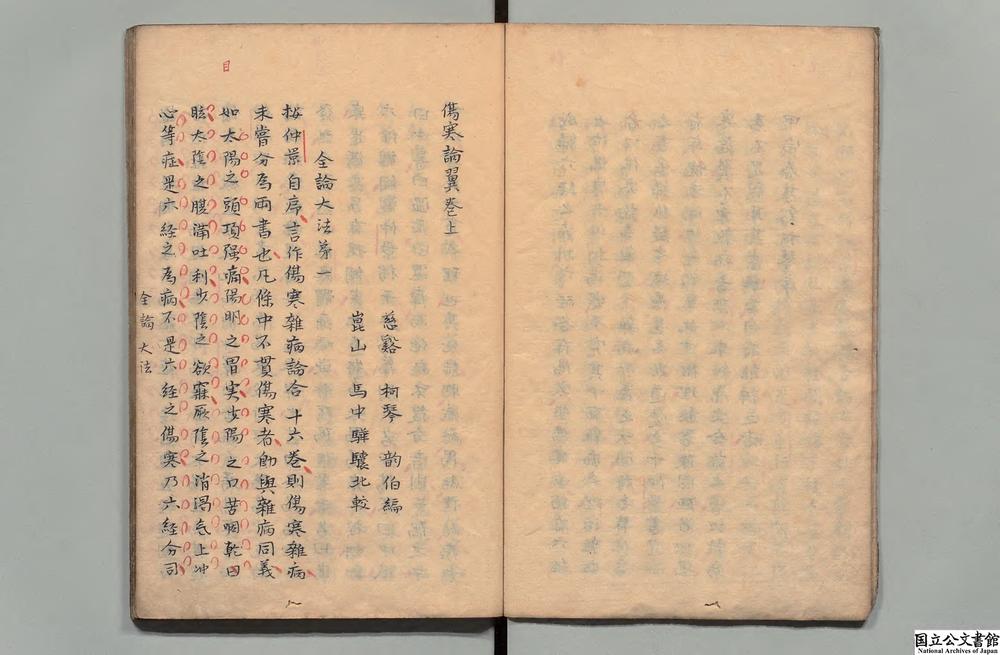 傷寒論翼巻上
慈谿 柯琴 韵伯編
崑山 馬中驊驤北較
全論大法第一
按仲景自序言作傷寒雜病論合十六巻則傷寒雜病
未嘗分為両書也凡條中不貫傷寒者即與雜病同義
如太陽之頭項强痛陽明之胃実少陽之口苦咽乾目
眩太陰之腹満吐利少陰之欲寐厥陰之消渇气上冲
心等症是六経之為病不是六経之傷寒乃六経分司
全論大法
目
国立公文書館
National Archives of Japan